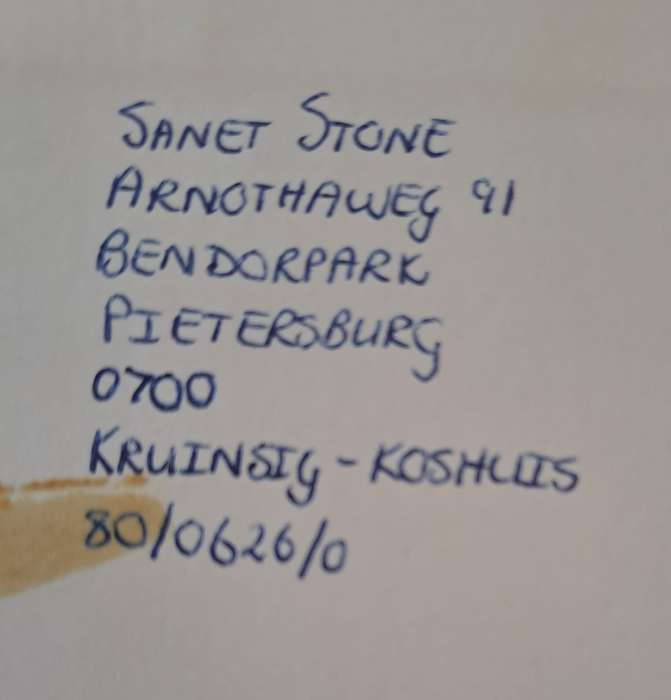 SANET STONE
ARNOTHAWEG 91
BENDORPARK
PIETERSBURG
0700
KRUINSIG - KOSHUIS
80/0626/0